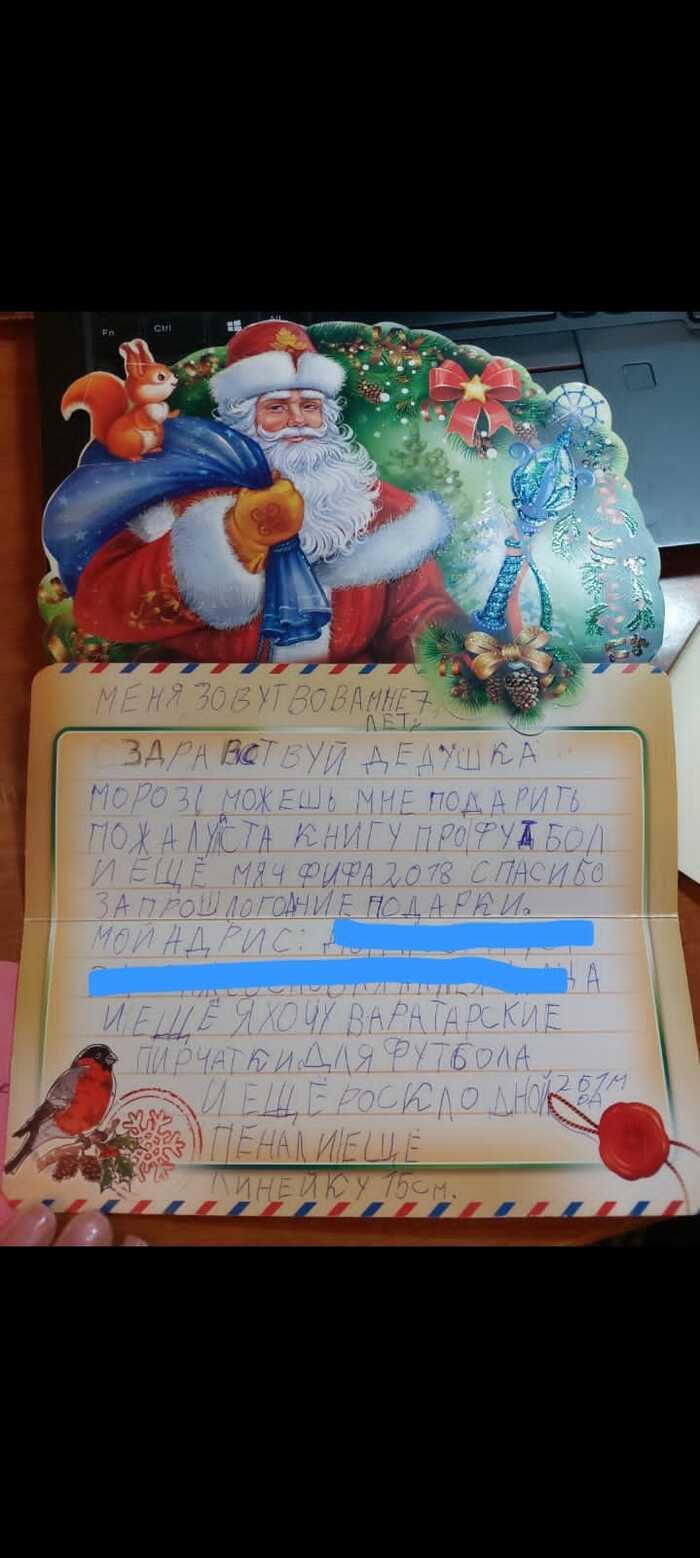 Fn Ctrl Alt
МЕНЯ ЗОВУТ ВОВА МНЕ 7
ЛЕТ
ЗДРАВСТВУЙ ДЕДУШКА
МОРОЗ! МОЖЕШЬ МНЕ ПОДАРИТЬ
ПОЖАЛУЙСТА КНИГУ ПРО ФУТБОЛ
И ЕЩЁ МЯЧ ФИФА 2018 СПАСИБО
ЗА ПРОШЛОГОДНИЕ ПОДАРКИ.
МОЙ АДРИС:
И ЕЩЁ Я ХОЧУ ВАРАТАРСКИЕ
ПИРЧАТКИ ДЛЯ ФУТБОЛА
И ЕЩЁ РОСКЛОДНОЙ
ПЕНАЛ И ЕЩЁ
ЛИНЕЙКУ 15 см.